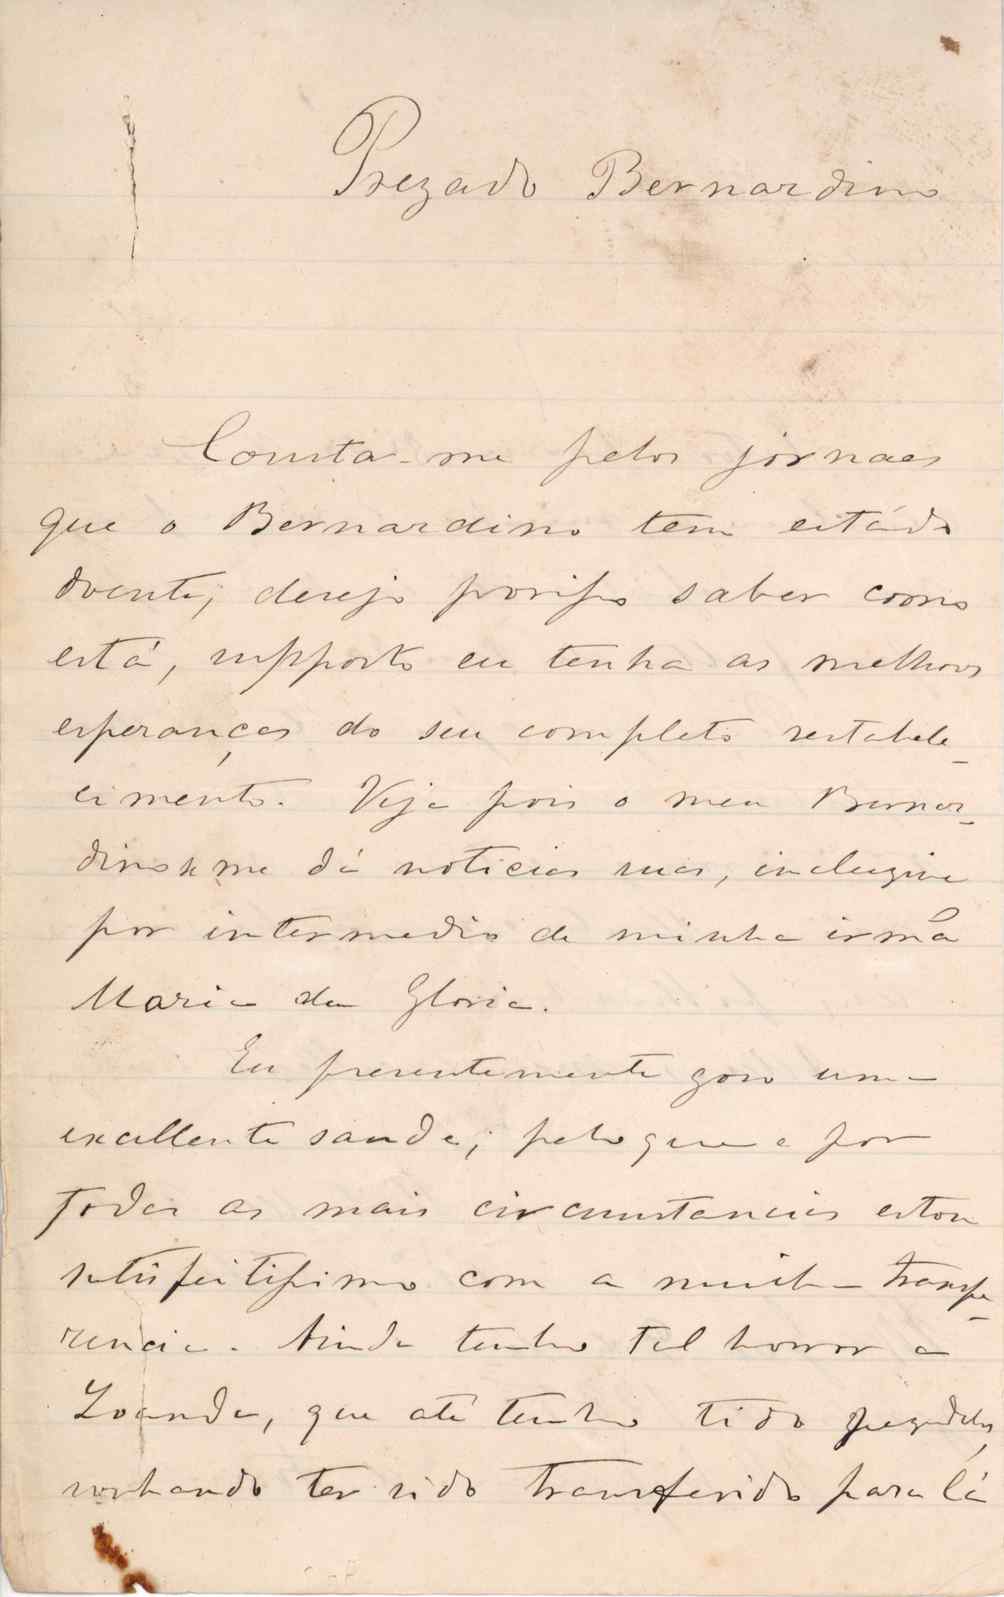 Prezado Bernardino
Consta-me pelos jornaes
que o Bernardino tem estádo
doente; desejo porisso saber como
está, supposto eu tenha as melhores
esperanças do seu completo restabele-
cimento. Veja pois o meu Bernar-
dino se me dá noticias suas, inclusive
por intermedio de minha irmã
Maria da Gloria.
Eu presentemente goso uma
excellente saude; pelo que e por
todas as mais circumstancias estou
satisfeitissimo com a minha transfe-
rencia. Ainda tenho tal horror a
Loanda, que até tenho tido pezadelos,
sonhando ter sido transferido para lá